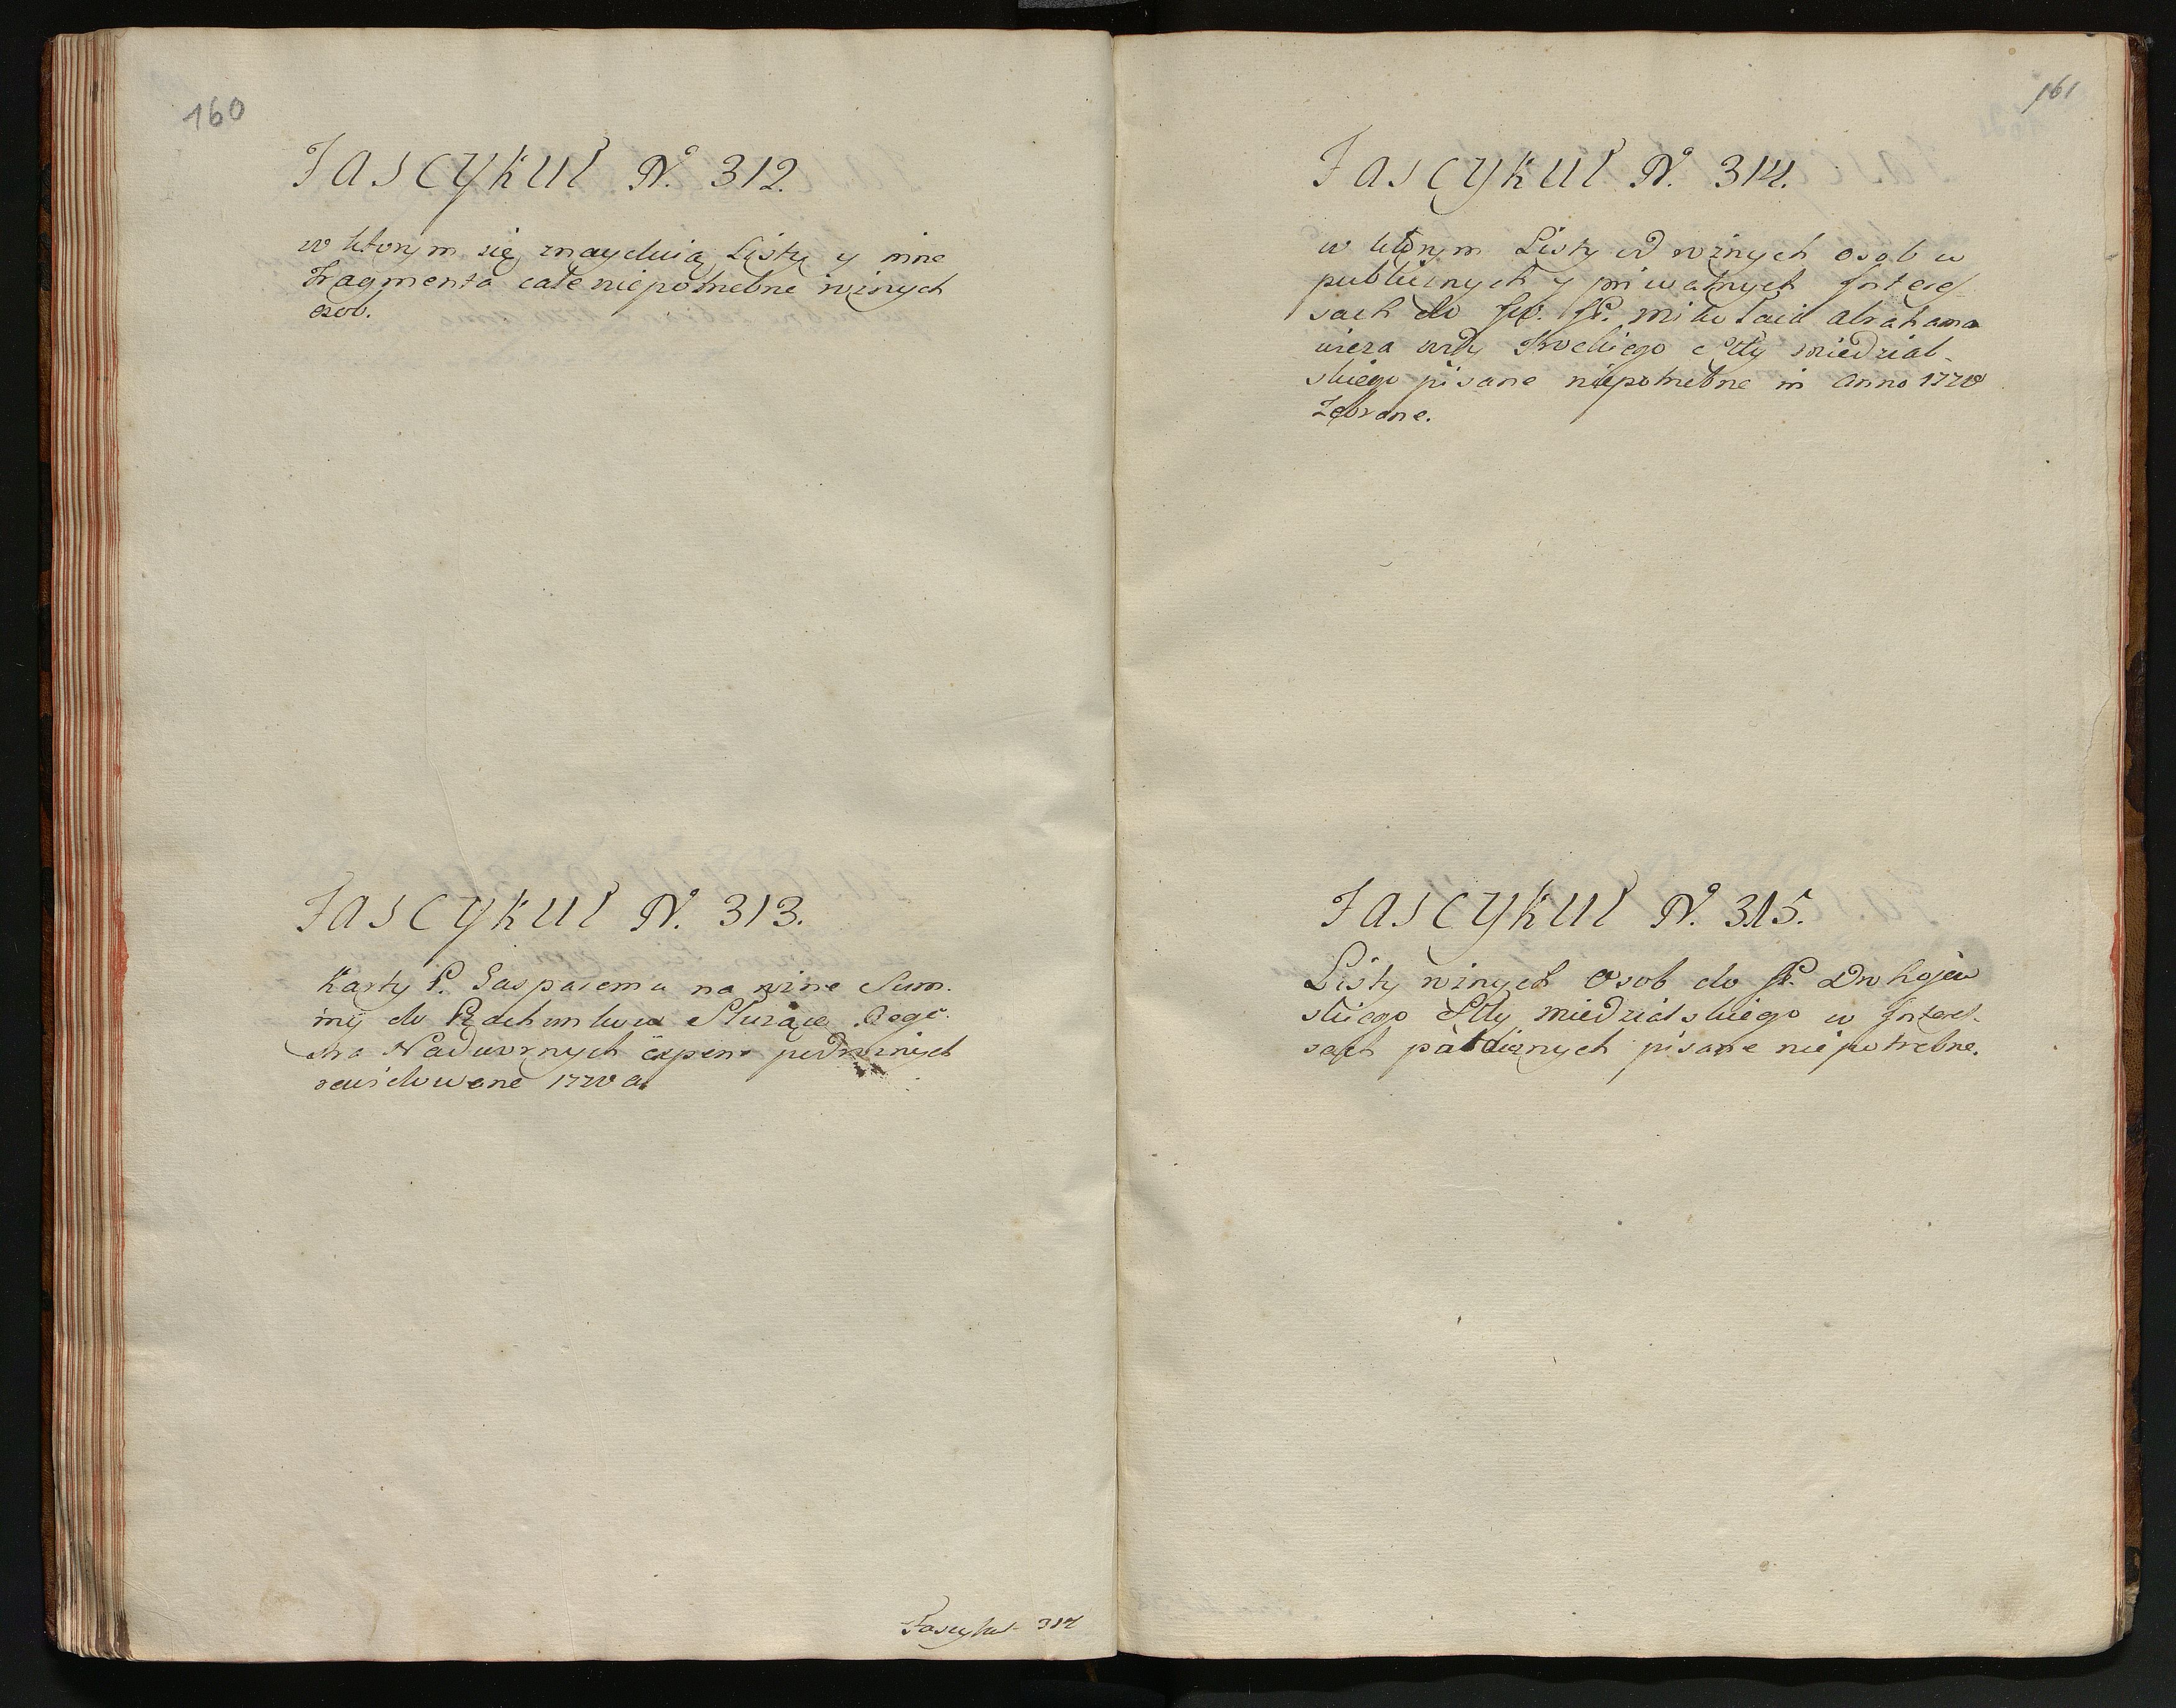 160
Fascykuł No. 312.
w ktorym się znayduią Listy y inne
Fragmenta cale niepotrzebne rożnych
osob.
Fascykuł No. 313.
Karty P. na rożne Sum.
my do Rachunkow Służące Rege-
stra Nadwornych expens rożnych
rewidowane
Fascykuł 314
161
Fascykuł No. 314.
w ktorym Listy od rożnych osob w
publicznych y priwatnych Interes-
sach do Jw. JP. Mikołaia Abrahama
wicza wdy Trockiego Stty Miedzial-
skiego pisane niepotrzebne in Anno
Zebrane.
Fascykuł No. 315.
Listy rożnych Osob do JP. Drohojew
skiego Stty Miedzialskiego w Interes-
sach publicznych pisane niepotrzebne.